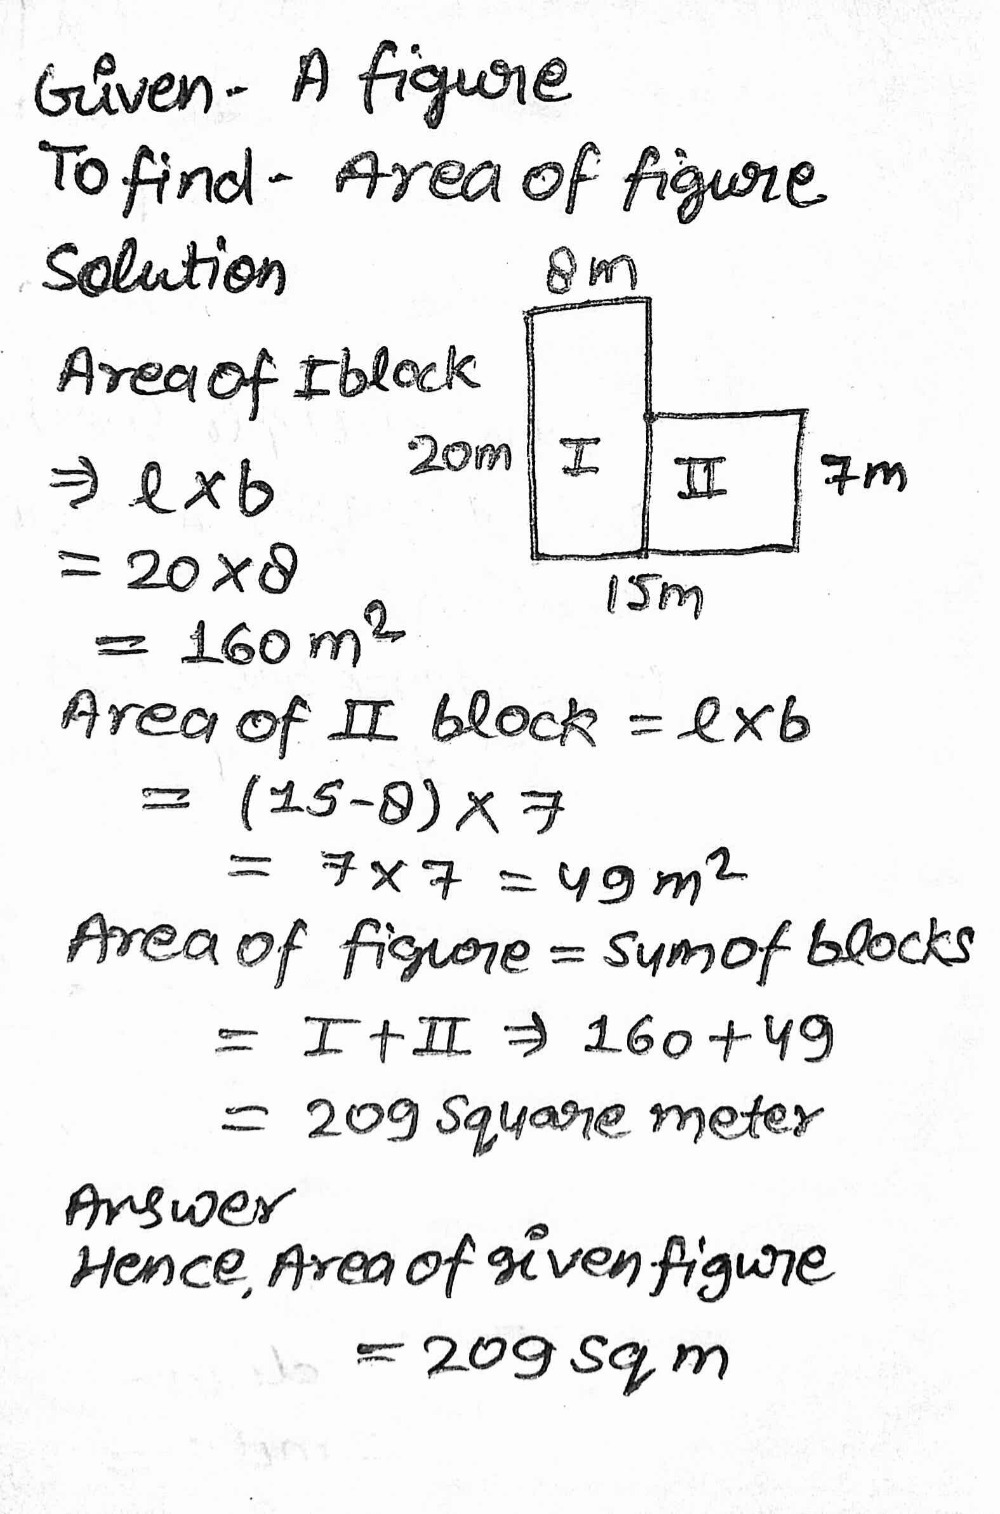 Given- A figure
To find- Area of figure
Solution
8m
Area of I block
20m I II 7m
⇒ l×b
= 20×8
15m
= 160 m²
Area of II block = l×b
= (15-8) × 7
= 7×7 = 49 m²
Area of figure = Sum of blocks
= I + II ⇒ 160+49
= 209 Square meter
Answer
Hence, Area of given figure
= 209 Sq m